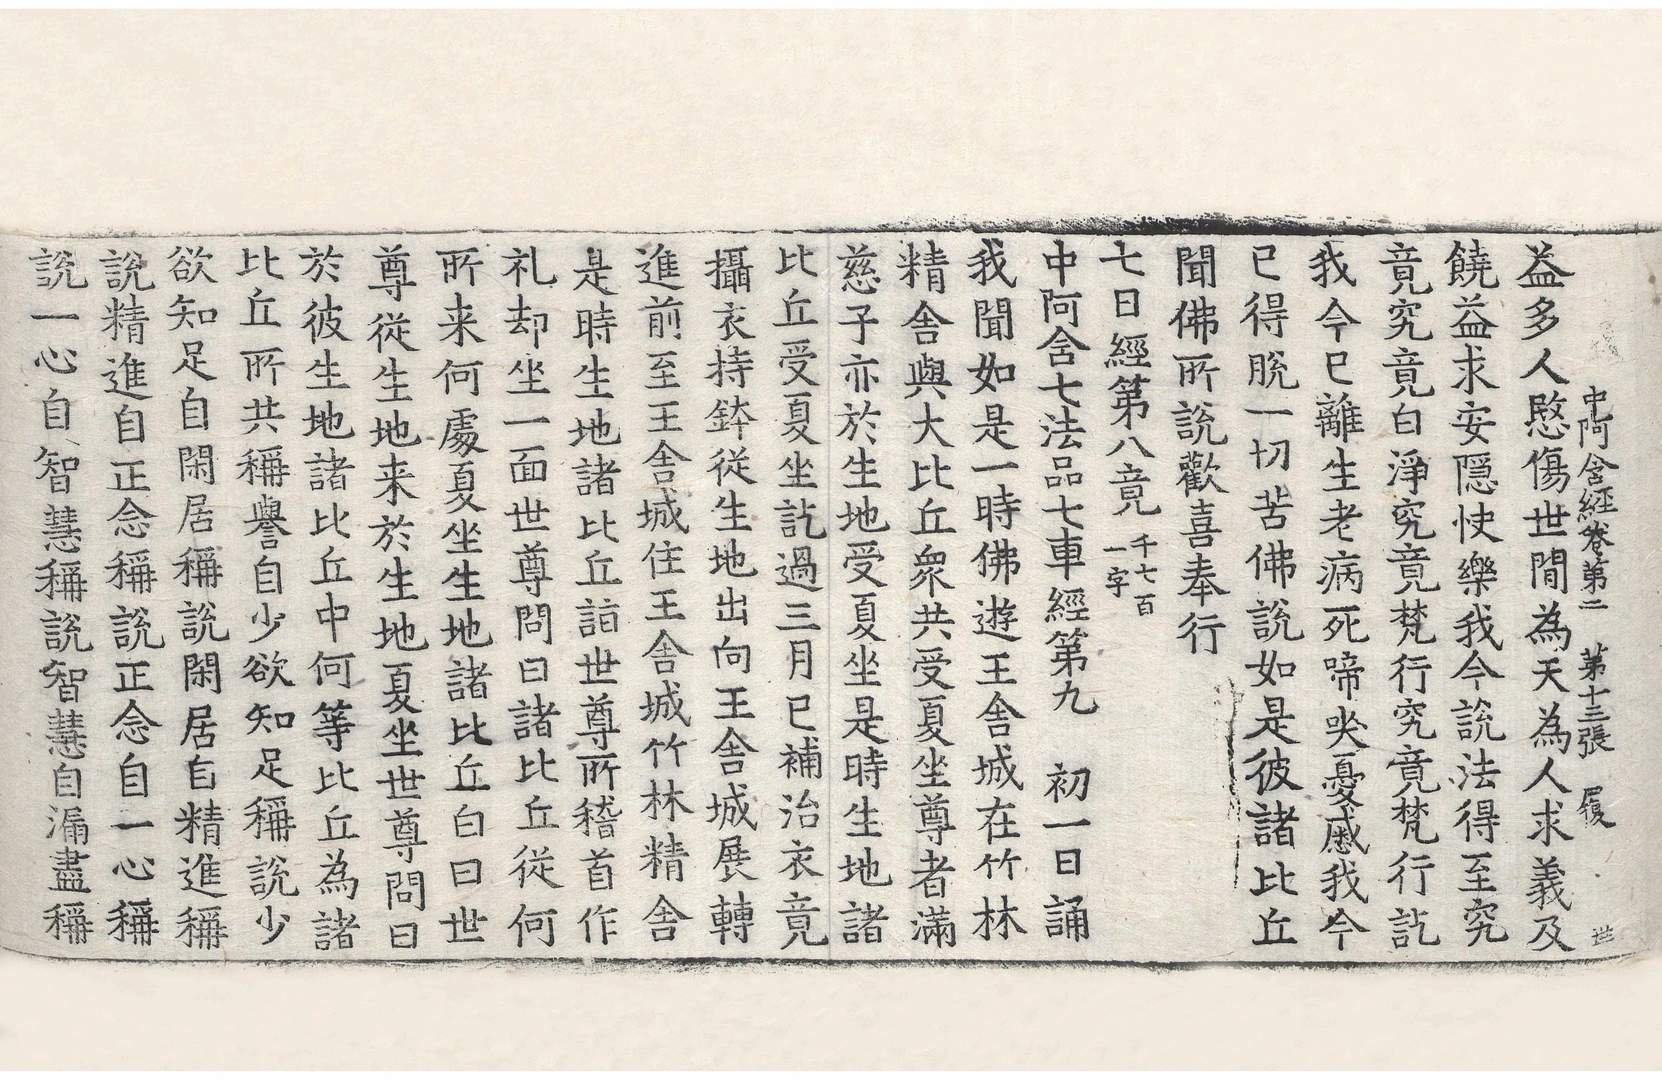 中阿含經卷第二　第十三張　履
世
益多人愍傷世間為天為人求義及
饒益求安隱快樂我今說法得至究
竟究竟白淨究竟梵行究竟梵行訖
我今已離生老病死啼哭憂慼我今
已得脫一切苦佛說如是彼諸比丘
聞佛所說歡喜奉行
七日經第八竟 千七百一字
中阿含七法品七車經第九　初一日誦
我聞如是一時佛遊王舍城在竹林
精舍與大比丘眾共受夏坐尊者滿
慈子亦於生地受夏坐是時生地諸
比丘受夏坐訖過三月已補治衣竟
攝衣持鉢從生地出向王舍城展轉
進前至王舍城住王舍城竹林精舍
是時生地諸比丘詣世尊所稽首作
礼却坐一面世尊問曰諸比丘從何
所来何處夏坐生地諸比丘白曰世
尊從生地来於生地夏坐世尊問曰
於彼生地諸比丘中何等比丘為諸
比丘所共稱譽自少欲知足稱說少
欲知足自閑居稱說閑居自精進稱
說精進自正念稱說正念自一心稱
說一心自智慧稱說智慧自漏盡稱